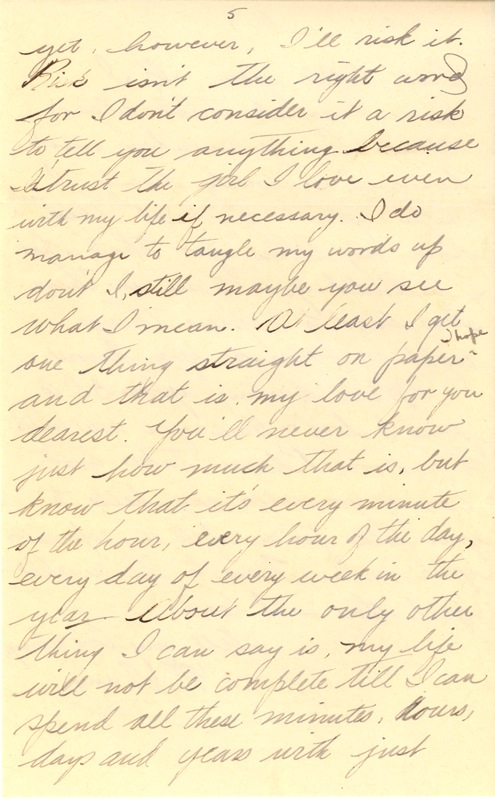 5
yet, however, I'll risk it.
Risk isn't the right word
for I don't consider it a risk
to tell you anything because
I trust the girl I love even
with my life if necessary. I do
manage to tangle my words up
don't I, still maybe you see
what I mean. At least I get
I hope
one thing straight on paper
and that is, my love for you
dearest. You'll never know
just how much that is, but
know that it's every minute
of the hour, every hour of the day,
every day of every week in the
year. About the only other
thing I can say is, my life
will not be complete till I can
spend all these minutes, hours,
days and years with just